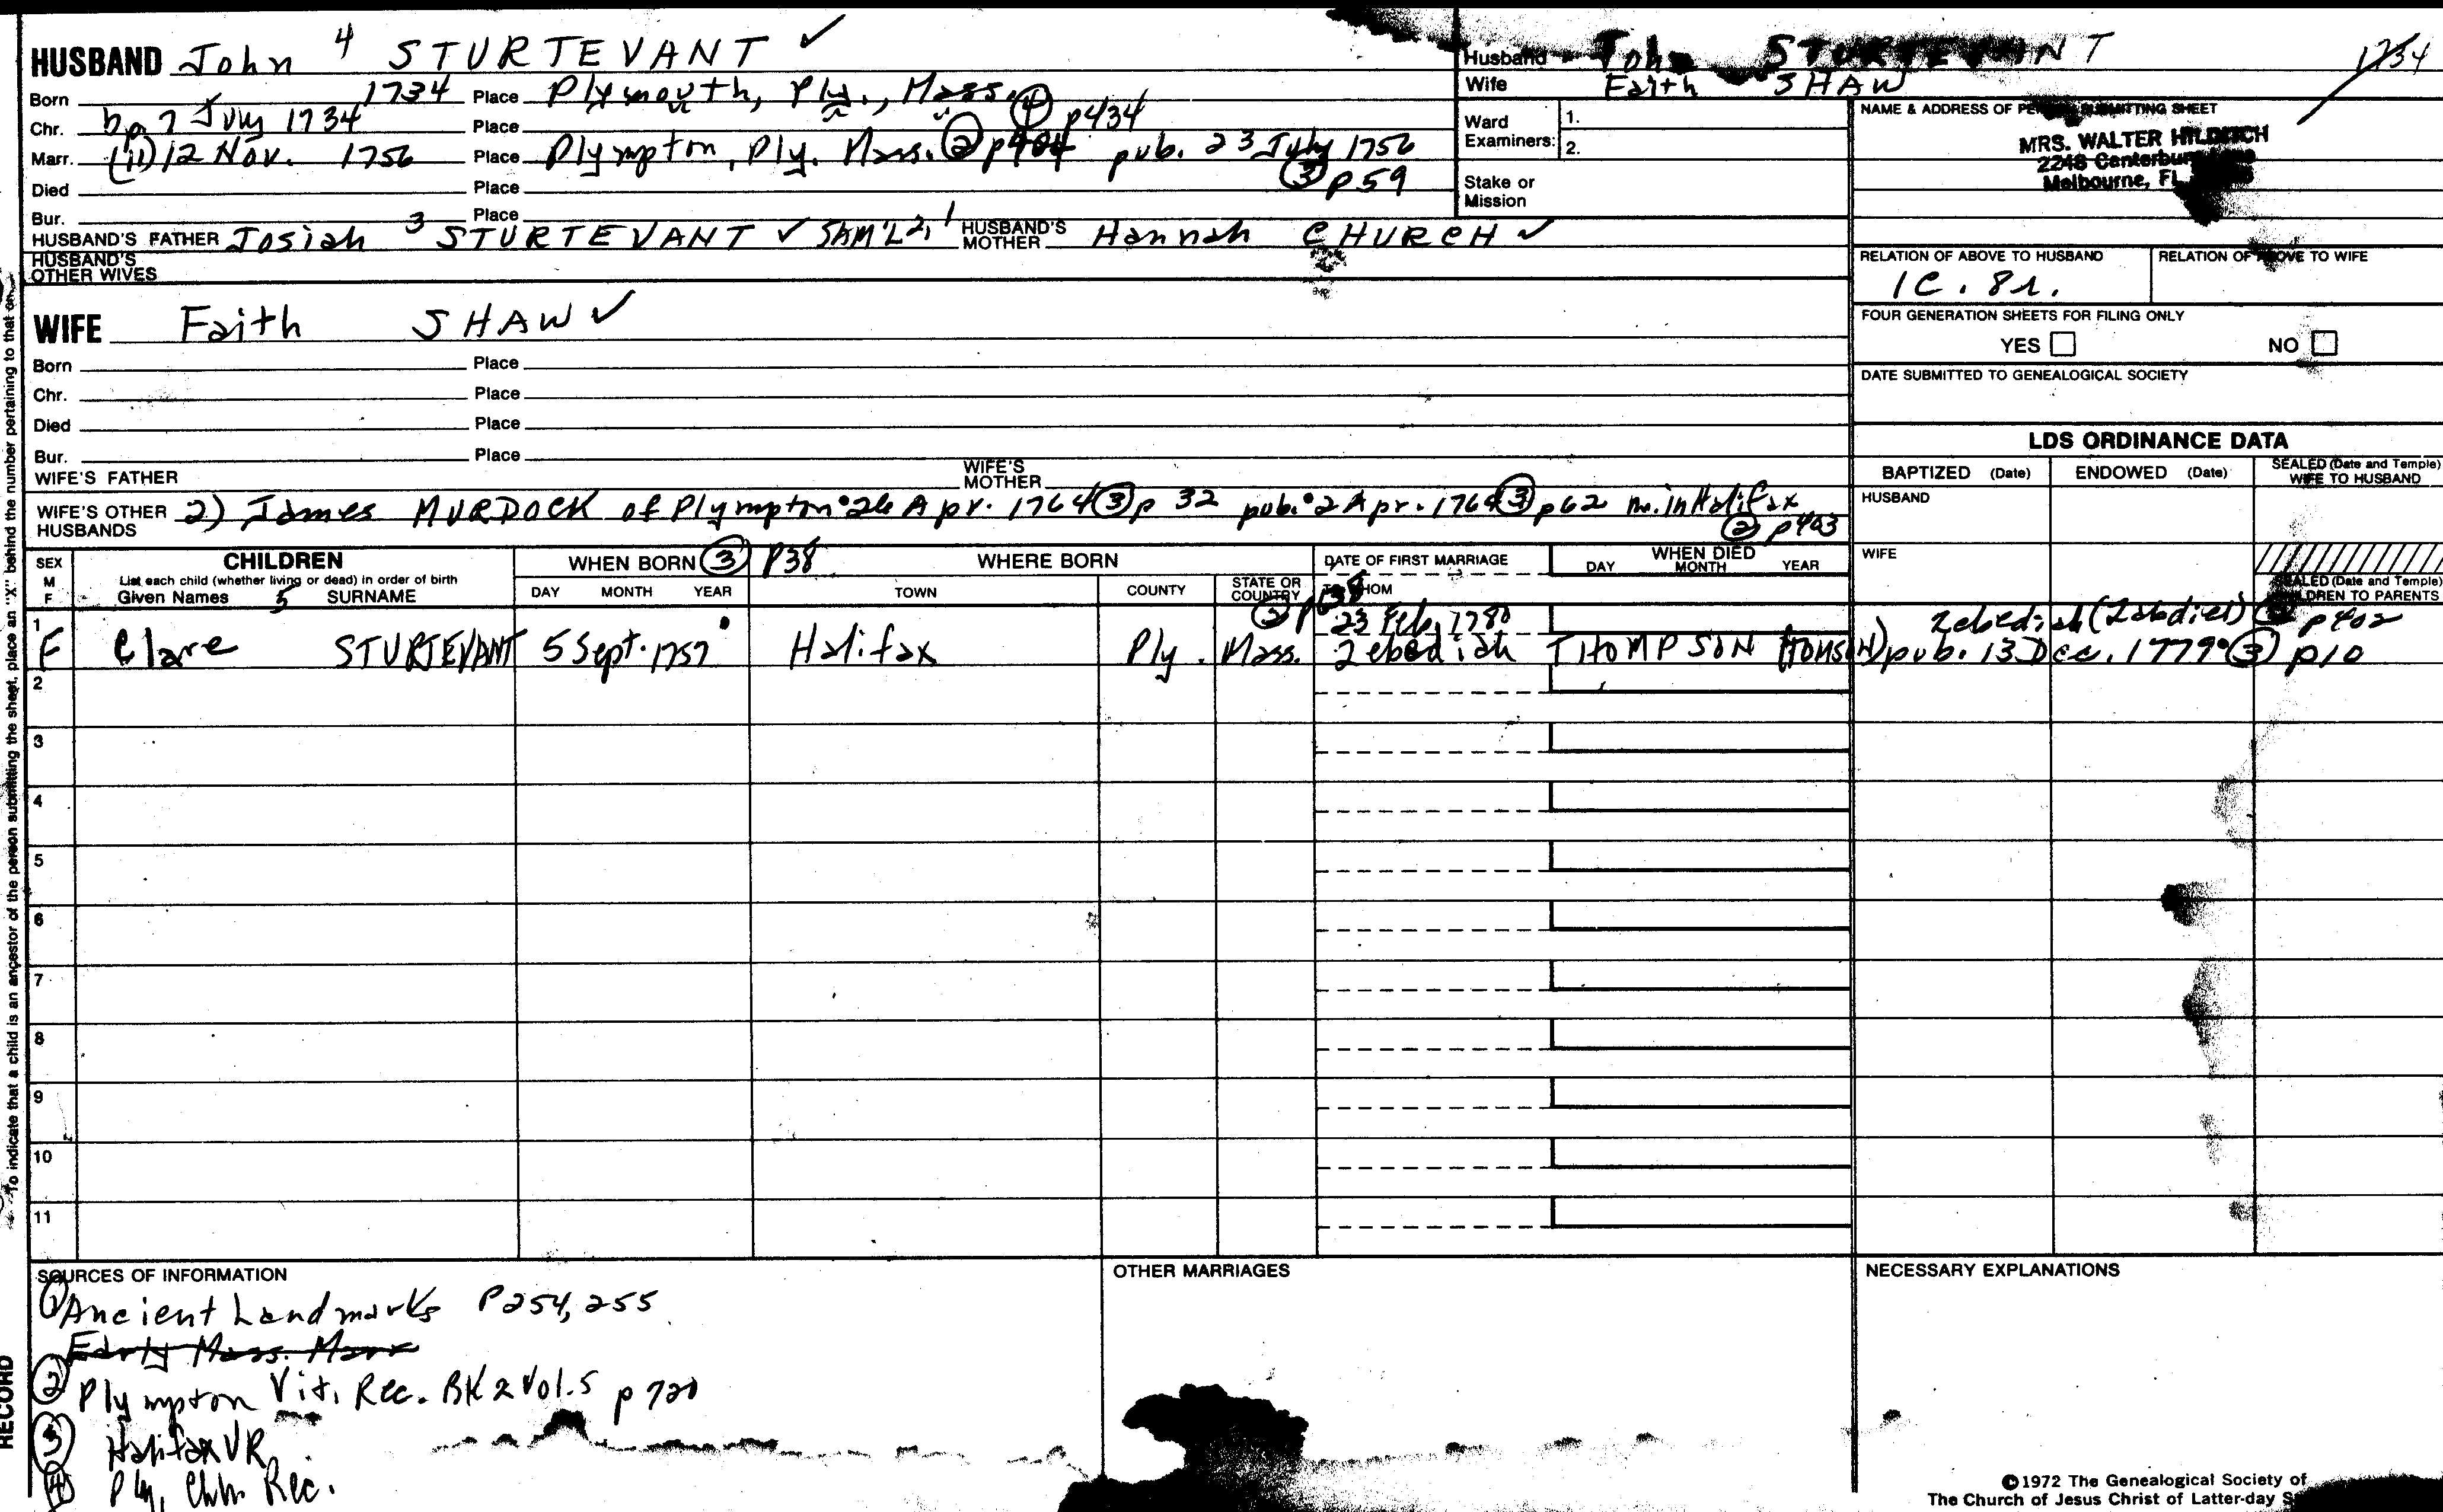 HUSBAND John 4 STURTEVANT ✓
Born 1734 Place Plymouth, Ply., Mass.
Chr. bp 7 July 1734 Place ④ p434
Marr. (11) 12 Nov. 1756 Place Plympton, Ply. Mass. ② p404 pub. 23 July 1756
Died Place ③ p59
Bur. Place
HUSBAND'S FATHER Josiah 3 STURTEVANT ✓ SAM'L 2, 1 HUSBAND'S MOTHER Hannah CHURCH ✓
HUSBAND'S OTHER WIVES
Husband John STURTEVANT 1734
Wife Faith SHAW
Ward Examiners: 1.
2.
Stake or Mission
NAME & ADDRESS OF PERSON SUBMITTING SHEET
MRS. WALTER HILDITCH
2248 Canterbury
Melbourne, FL
RELATION OF ABOVE TO HUSBAND RELATION OF ABOVE TO WIFE
1C. 8r.
FOUR GENERATION SHEETS FOR FILING ONLY
YES NO
DATE SUBMITTED TO GENEALOGICAL SOCIETY
WIFE Faith SHAW ✓
Born Place
Chr. Place
Died Place
Bur. Place
WIFE'S FATHER WIFE'S MOTHER
WIFE'S OTHER HUSBANDS 2) James MURDOCK of Plympton 26 Apr. 1764 ③ p 32 pub. 2 Apr. 1764 ③ p62 m. in Halifax
② p403
LDS ORDINANCE DATA
BAPTIZED (Date) ENDOWED (Date) SEALED (Date and Temple) WIFE TO HUSBAND
HUSBAND
WIFE
SEALED (Date and Temple) CHILDREN TO PARENTS
SEX M F
CHILDREN
List each child (whether living or dead) in order of birth
Given Names 5 SURNAME
WHEN BORN ③ p38
DAY MONTH YEAR
WHERE BORN
TOWN COUNTY STATE OR COUNTRY
DATE OF FIRST MARRIAGE
TO WHOM
WHEN DIED
DAY MONTH YEAR
23 Feb. 1780 Zebediah (Zabdiel) p402
1 F Clare STURTEVANT 5 Sept. 1757 Halifax Ply. Mass. Zebediah THOMPSON (TOMSON) pub. 13 Dec. 1779 ③ p10
2
3
4
5
6
7
8
9
10
11
SOURCES OF INFORMATION
① Ancient Landmarks P254, 255
Early Mass. Marr
② Plympton Vit. Rec. BK 2 Vol. 5 p 720
③ Halifax VR
④ Ply. Chh. Rec.
OTHER MARRIAGES
NECESSARY EXPLANATIONS
©1972 The Genealogical Society of
The Church of Jesus Christ of Latter-day
To indicate that a child is an ancestor of the person submitting the sheet, place an "X" behind the number pertaining to that
RECORD